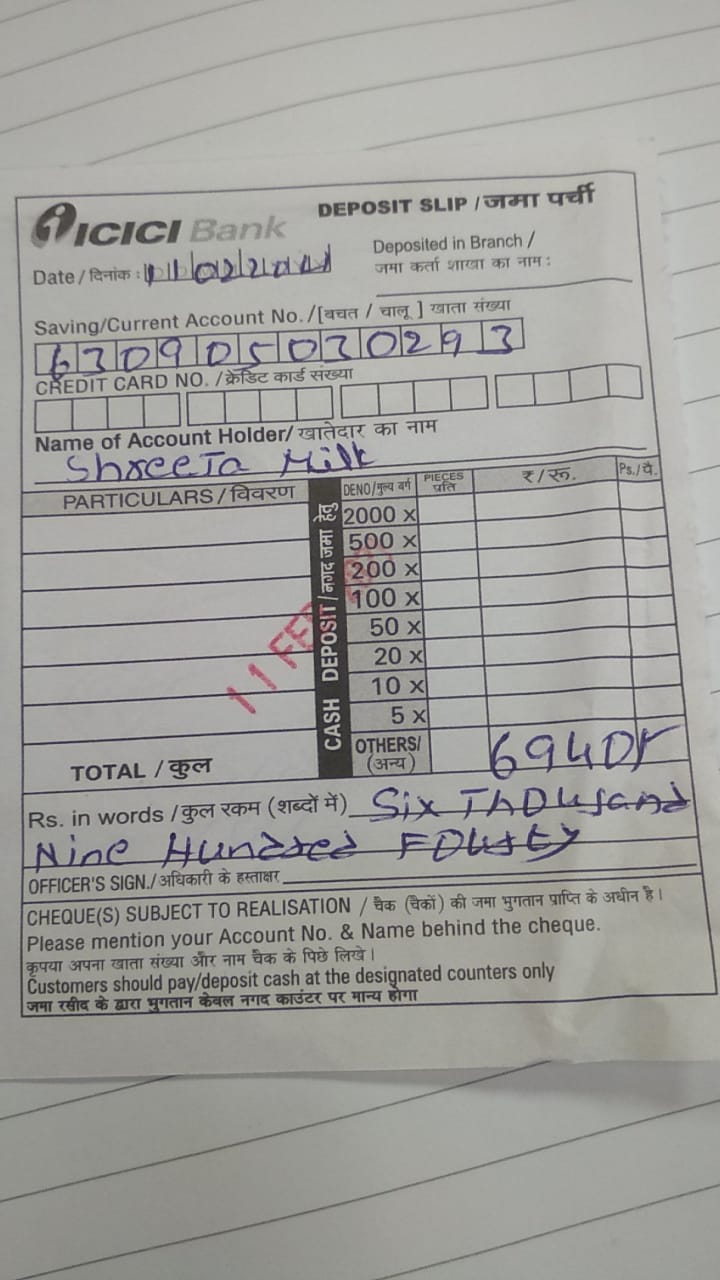 ICICI Bank DEPOSIT SLIP / जमा पर्ची
Date / दिनांक :
Deposited in Branch /
जमा कर्ता शाखा का नाम :
Saving/Current Account No. /[बचत / चालू ] खाता संख्या
630905030293
CREDIT CARD NO. / क्रेडिट कार्ड संख्या
Name of Account Holder/ खातेदार का नाम
Milk
PARTICULARS / विवरण
CASH DEPOSIT / नगद जमा हेतु
DENO/मुल्य वर्ग PIECES प्रति ₹ / रू. Ps./पै.
2000 x
500 x
200 x
100 x
50 x
20 x
10 x
5 x
11 FEB
TOTAL / कुल OTHERS/ (अन्य) 6940
Rs. in words / कुल रकम (शब्दों में) Six Thousand
Nine Hundred Fourty
OFFICER'S SIGN. / अधिकारी के हस्ताक्षर
CHEQUE(S) SUBJECT TO REALISATION / चैक (चैकों) की जमा भुगतान प्राप्ति के अधीन है।
Please mention your Account No. & Name behind the cheque.
कृपया अपना खाता संख्या और नाम चैक के पिछे लिखे।
Customers should pay/deposit cash at the designated counters only
जमा रसीद के द्वारा भुगतान केवल नगद काउंटर पर मान्य होगा